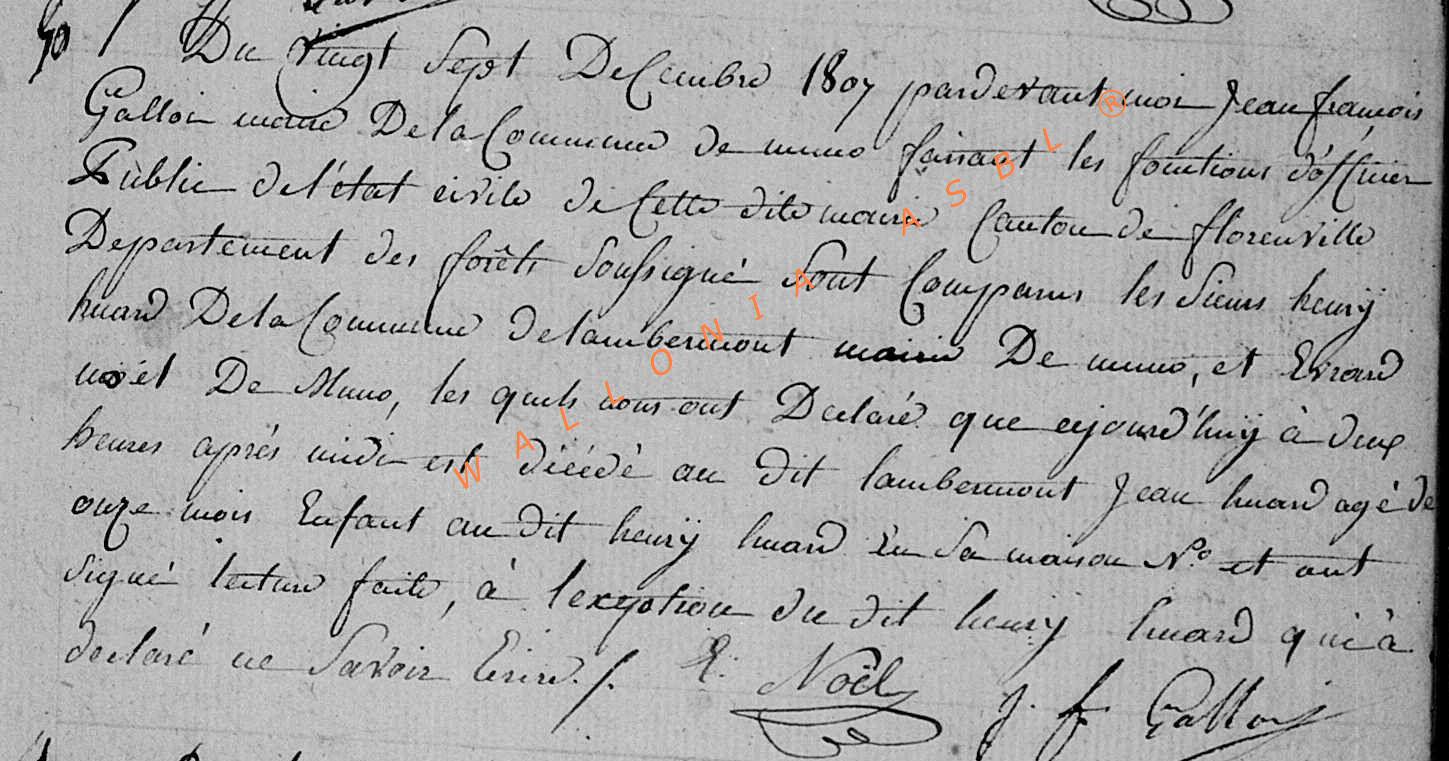 50 / Du vingt Sept Decembre 1807 pardevant moi Jean françois
Galloi maire De la Commune de muno faisant les fonctions d'officier
Public de l'état civile de Cette dite mairie Canton de florenville
Departement des forêts soussigné sont Comparus les sieurs henrÿ
huard De la Commune de lambermont mairie De muno, et Errard
noël De Muno, les quels nous ont Declaré que aujourd'huÿ à deux
heures aprés midi est décédé au dit lambermont Jean huard agé de
onze mois Enfant au dit henrÿ huard En Sa maison N.º et ont
signé lecture faite, à l'exeption du dit henrÿ huard qui à
declaré ne Savoir Ecrire. /. E. Noël J. f. Galloi
WALLONIA ASBL ®